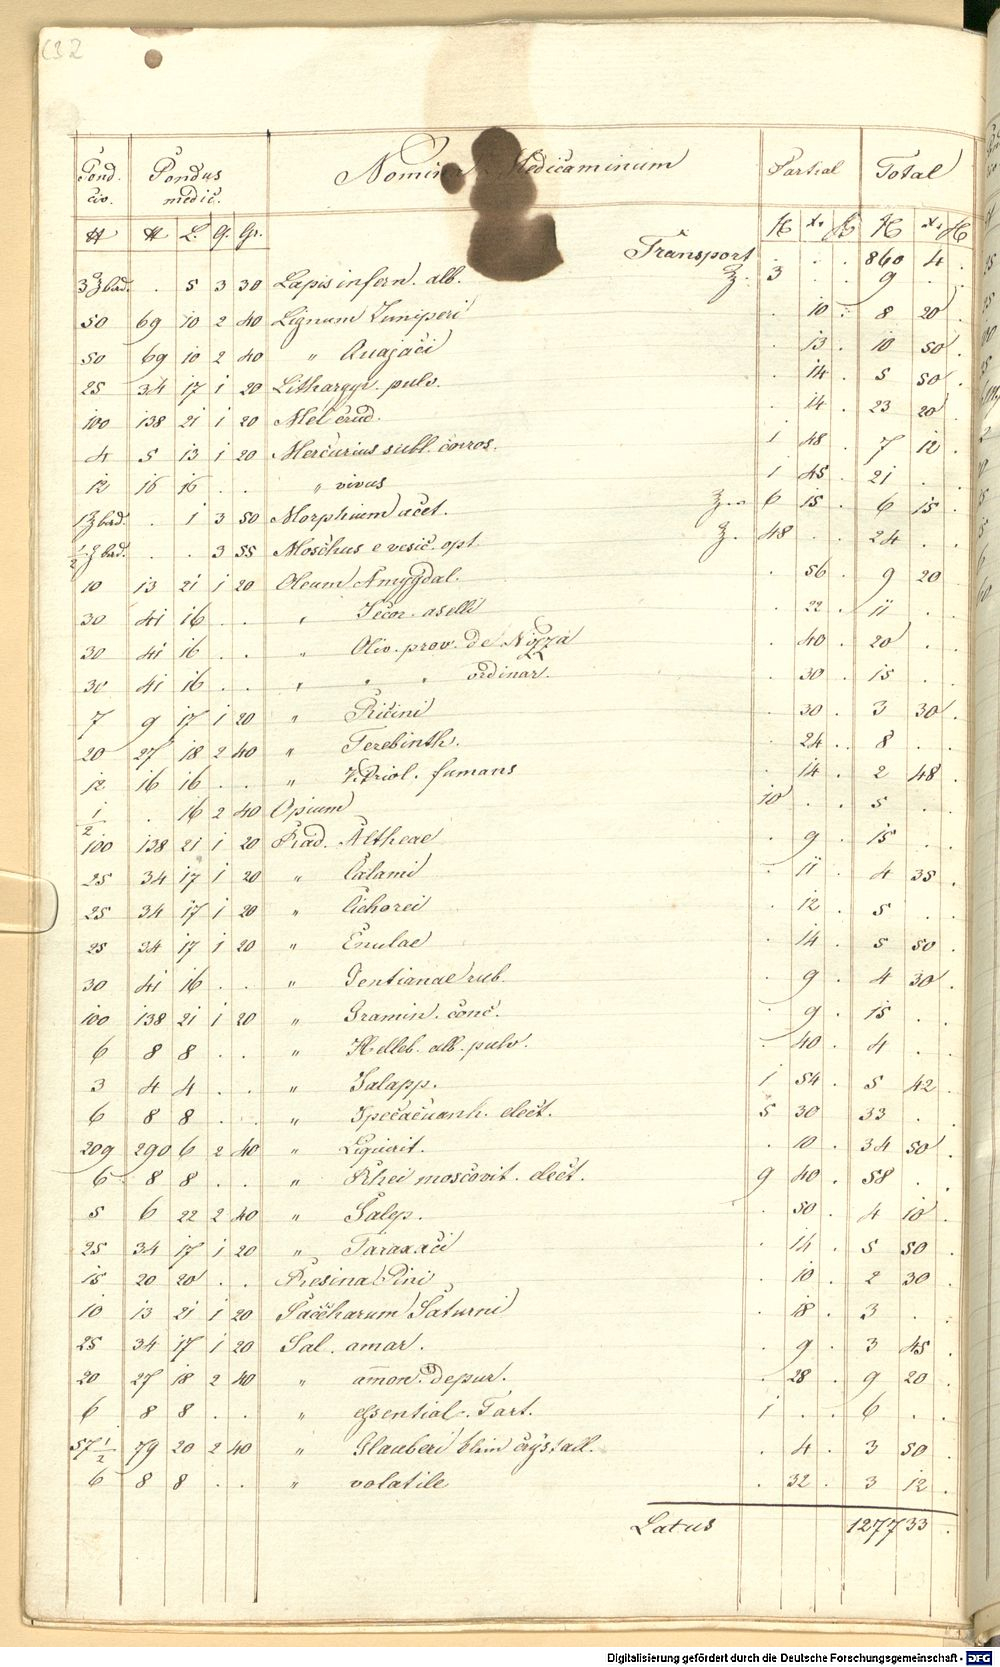 132
Pond. civ. Pondus medic. Nomina Medicaminum Partial Total
℔ ℔ L. q. Gr. fl xr fl xr
Transport . . . 860 4 .
3 ℥ bad. . 5 3 30 Lapis infern. alb. ℥. 3 . . 9 . .
50 69 10 2 40 Lignum Juniperi . 10 . 8 20 .
50 69 10 2 40 " Quajaci . 13 . 10 50 .
25 34 17 1 20 Lithargyr. pulv. . 14 . 5 50 .
100 138 21 1 20 Mel crud. . 14 . 23 20 .
4 5 13 1 20 Mercurius subl. corros. 1 48 . 7 12 .
12 16 16 . . " vivus 1 45 . 21 . .
1 ℥ bad. . 1 3 50 Morphium acet. ℥. 6 15 . 6 15 .
1/2 ℥ bad. . . 3 55 Moschus e vesic. opt. ℥. 48 . . 24 . .
10 13 21 1 20 Oleum Amygdal. . 56 . 9 20
30 41 16 . . " Jecor. aselli . 22 . 11 . .
30 41 16 . . " Oliv. prov. de Nizza . 40 . 20 . .
30 41 16 . . " " " ordinar. . 30 . 15 . .
7 9 17 1 20 " Ricini . 30 . 3 30 .
20 27 18 2 40 " Terebinth. . 24 . 8 . .
12 16 16 . . " Vitriol. fumans . 14 . 2 48 .
1/2 . 16 2 40 Opium 10 . . 5 . .
100 138 21 1 20 Rad. Altheae . 9 . 15 . .
25 34 17 1 20 " Calami . 11 . 4 35 .
25 34 17 1 20 " Cichorei . 12 . 5 . .
25 34 17 1 20 " Enulae . 14 . 5 50 .
30 41 16 . . " Gentianae rub. . 9 . 4 30 .
100 138 21 1 20 " Gramin. conc. . 9 . 15 . .
6 8 8 . . " Helleb. alb. pulv. . 40 . 4 . .
3 4 4 . . " Jalapp. 1 54 . 5 42 .
6 8 8 . . " Ipecacuanh. elect. 5 30 33 . .
209 290 6 2 40 " Liquirit. . 10 . 34 50 .
6 8 8 . . " Rhei moscovit. elect. 9 40 . 58 . .
5 6 22 2 40 " Salep. . 50 . 4 10 .
25 34 17 1 20 " Taraxaci . 14 . 5 50 .
15 20 20 . . Resina Pini . 10 . 2 30 .
10 13 21 1 20 Saccharum Saturni . 18 . 3 . .
25 34 17 1 20 Sal. amar. . 9 . 3 45 .
20 27 18 2 40 " amon. depur. . 28 . 9 20 .
6 8 8 . . " essential. Tart. 1 . . 6 . .
57 1/2 79 20 2 40 " Glauberi crystall. . 4 . 3 50 .
6 8 8 . . " volatile . 32 . 3 12 .
Latus 1277 33 .
Digitalisierung gefördert durch die Deutsche Forschungsgemeinschaft - DFG